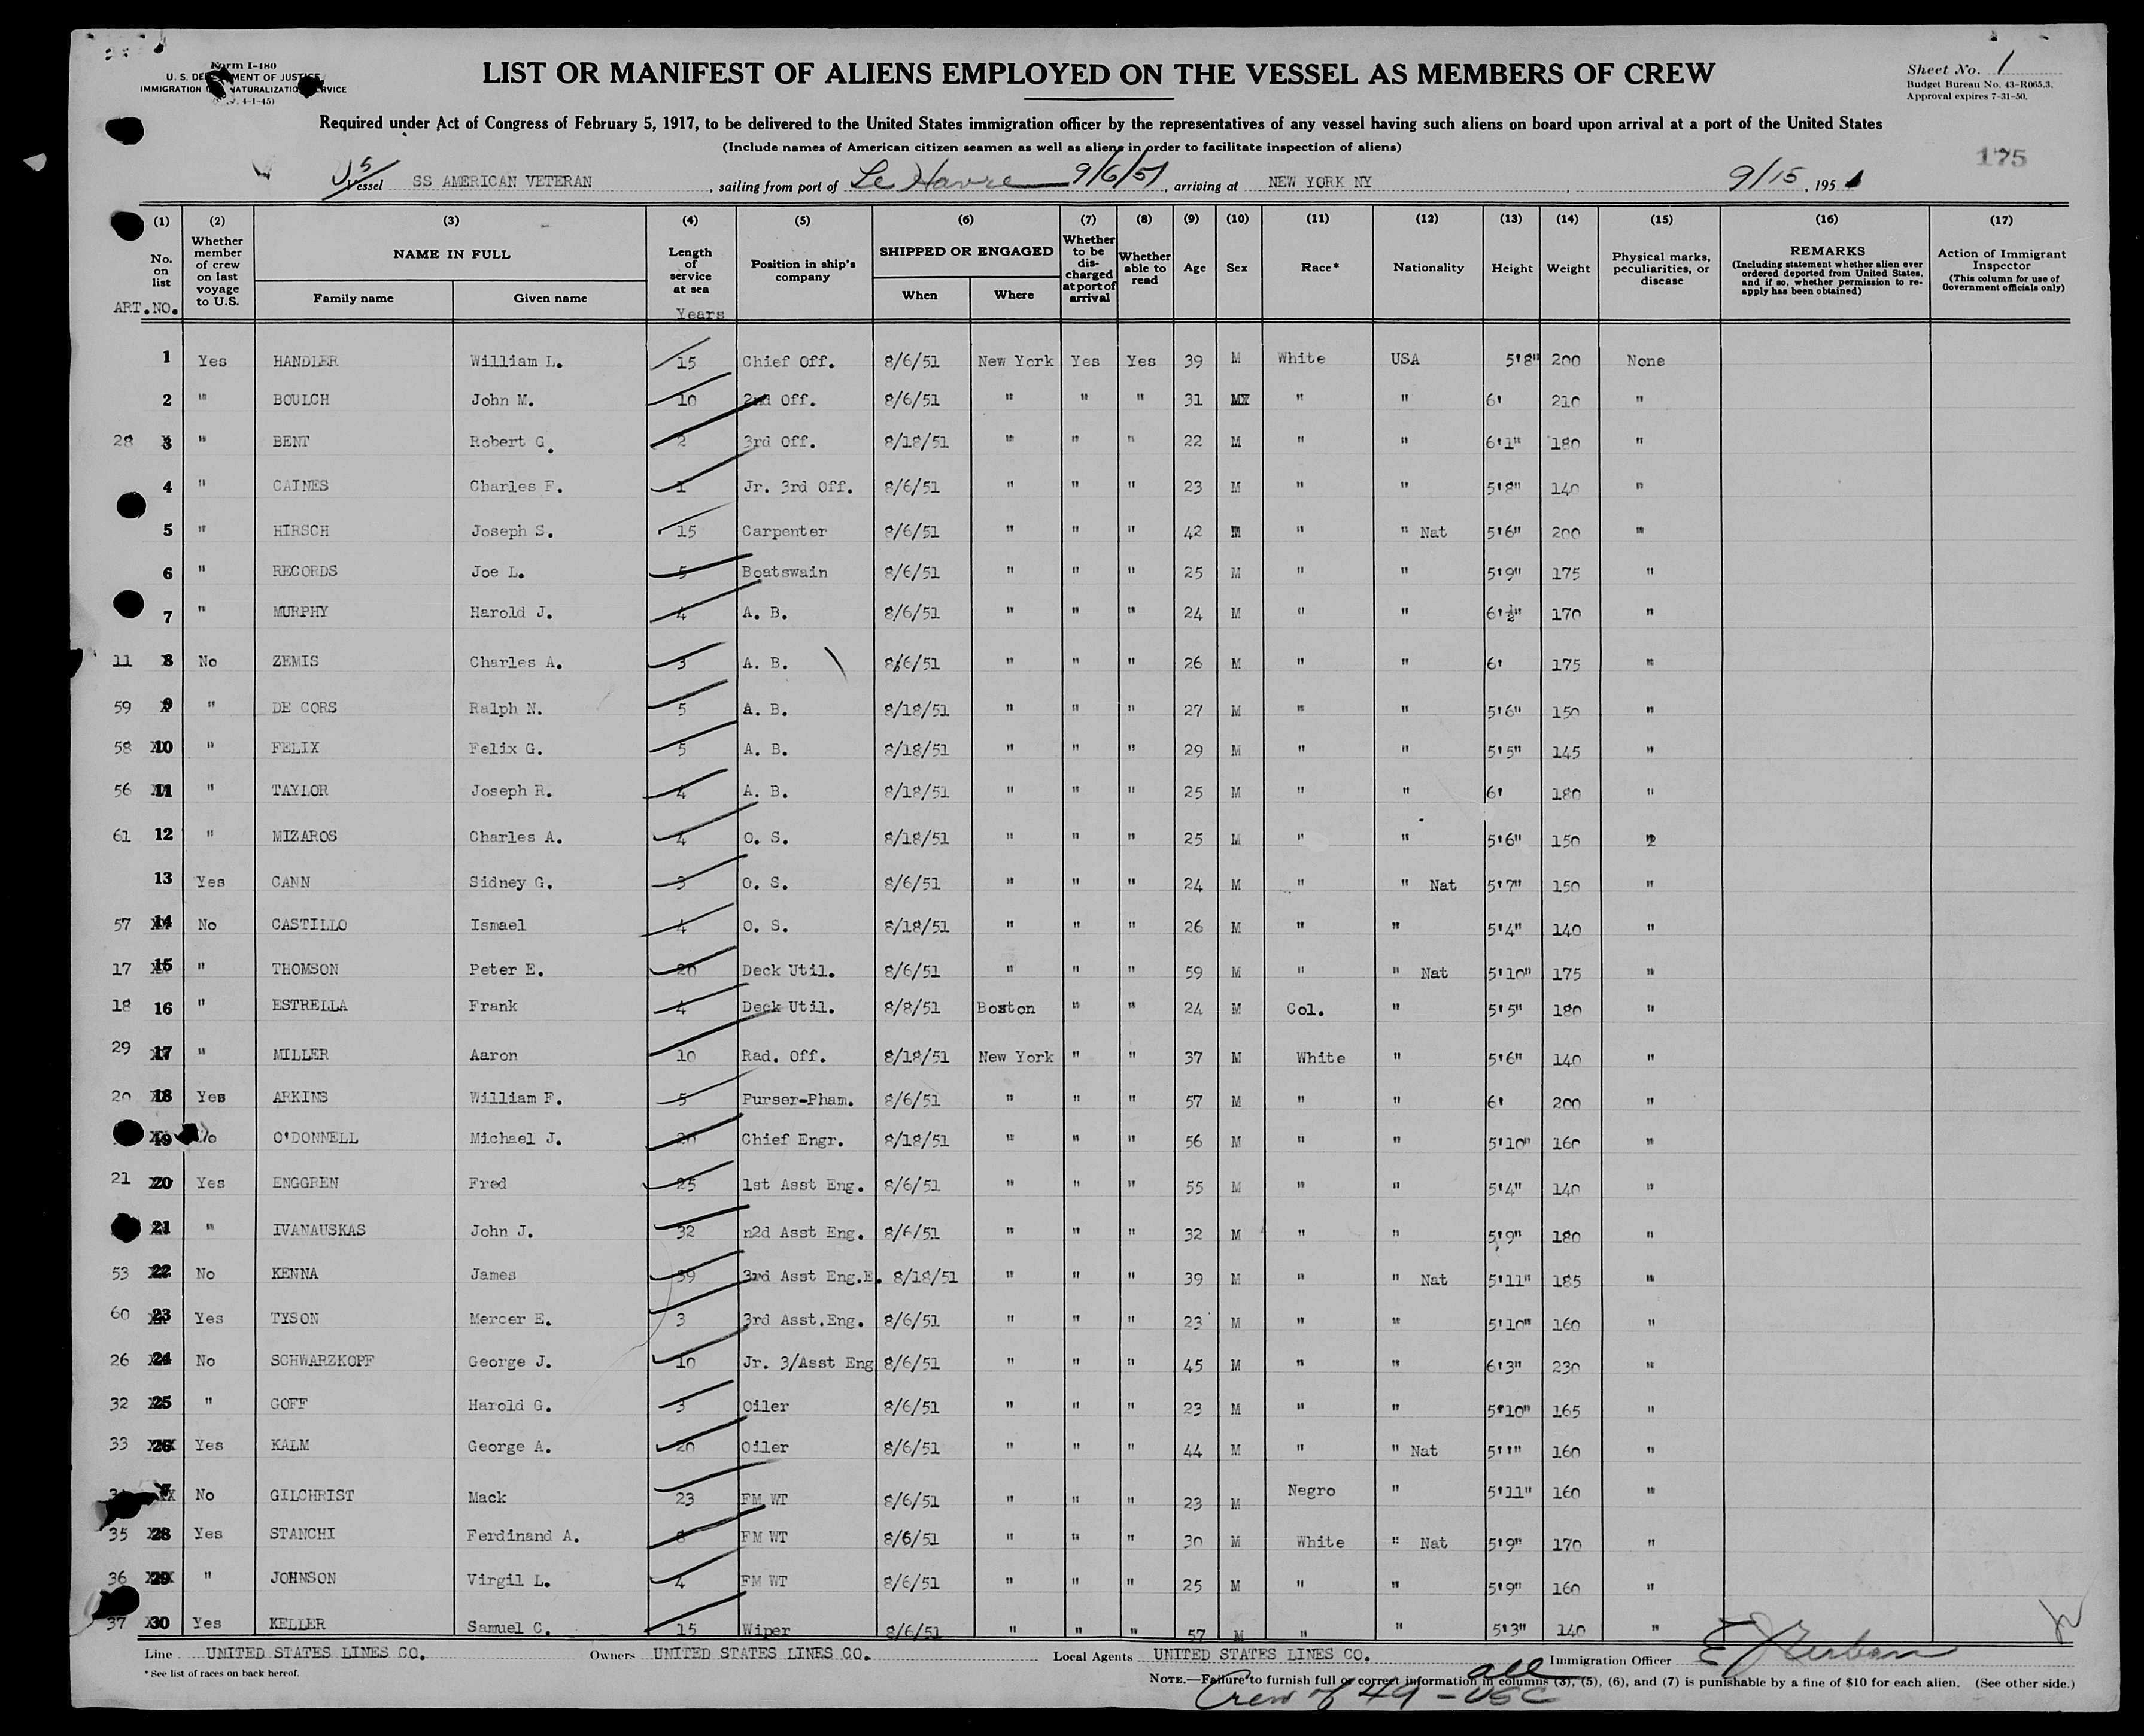 Form I-480
U. S. DEPARTMENT OF JUSTICE
IMMIGRATION NATURALIZATION SERVICE
4-1-45)
LIST OR MANIFEST OF ALIENS EMPLOYED ON THE VESSEL AS MEMBERS OF CREW
Sheet No. 1
Budget Bureau No. 43-R065.3.
Approval expires 7-31-50.
Required under Act of Congress of February 5, 1917, to be delivered to the United States immigration officer by the representatives of any vessel having such aliens on board upon arrival at a port of the United States
(Include names of American citizen seamen as well as aliens in order to facilitate inspection of aliens)
175
Vessel SS AMERICAN VETERAN, sailing from port of Le Havre 9/6/51, arriving at NEW YORK NY, 9/15, 1951
(1) (2) (3) (4) (5) (6) (7) (8) (9) (10) (11) (12) (13) (14) (15) (16) (17)
No. on list
ART. NO.
Whether member of crew on last voyage to U.S.
NAME IN FULL
Family name Given name
Length of service at sea
Years
Position in ship's company
SHIPPED OR ENGAGED
When Where
Whether to be discharged at port of arrival
Whether able to read
Age Sex Race* Nationality Height Weight
Physical marks, peculiarities, or disease
REMARKS
(Including statement whether alien ever ordered deported from United States, and if so, whether permission to reapply has been obtained)
Action of Immigrant Inspector
(This column for use of Government officials only)
1 Yes HANDLER William L. 15 Chief Off. 8/6/51 New York Yes Yes 39 M White USA 5'8" 200 None
2 " BOULCH John M. 10 2nd Off. 8/6/51 " " " 31 M " " 6' 210 "
28 3 " BENT Robert G. 2 3rd Off. 8/18/51 " " " 22 M " " 6'1" 180 "
4 " CAINES Charles F. 1 Jr. 3rd Off. 8/6/51 " " " 23 M " " 5'8" 140 "
5 " HIRSCH Joseph S. 15 Carpenter 8/6/51 " " " 42 M " " Nat 5'6" 200 "
6 " RECORDS Joe L. 5 Boatswain 8/6/51 " " " 25 M " " 5'9" 175 "
7 " MURPHY Harold J. 4 A. B. 8/6/51 " " " 24 M " " 6'½" 170 "
11 8 No ZEMIS Charles A. 3 A. B. 8/6/51 " " " 26 M " " 6' 175 "
59 9 " DE CORS Ralph N. 5 A. B. 8/18/51 " " " 27 M " " 5'6" 150 "
58 10 " FELIX Felix G. 5 A. B. 8/18/51 " " " 29 M " " 5'5" 145 "
56 11 " TAYLOR Joseph R. 4 A. B. 8/18/51 " " " 25 M " " 6' 180 "
61 12 " MIZAROS Charles A. 4 O. S. 8/18/51 " " " 25 M " " 5'6" 150 "
13 Yes CANN Sidney G. 3 O. S. 8/6/51 " " " 24 M " " Nat 5'7" 150 "
57 14 No CASTILLO Ismael 4 O. S. 8/18/51 " " " 26 M " " 5'4" 140 "
17 15 " THOMSON Peter E. 20 Deck Util. 8/6/51 " " " 59 M " " Nat 5'10" 175 "
18 16 " ESTRELLA Frank 4 Deck Util. 8/8/51 Boston " " 24 M Col. " 5'5" 180 "
29 17 " MILLER Aaron 10 Rad. Off. 8/18/51 New York " " 37 M White " 5'6" 140 "
20 18 Yes ARKINS William F. 5 Purser-Pham. 8/6/51 " " " 57 M " " 6' 200 "
19 No O'DONNELL Michael J. 20 Chief Engr. 8/18/51 " " " 56 M " " 5'10" 160 "
21 20 Yes ENGGREN Fred 25 1st Asst Eng. 8/6/51 " " " 55 M " " 5'4" 140 "
21 " IVANAUSKAS John J. 32 n2d Asst Eng. 8/6/51 " " " 32 M " " 5'9" 180 "
53 22 No KENNA James 39 3rd Asst Eng.E. 8/18/51 " " " 39 M " " Nat 5'11" 185 "
60 23 Yes TYSON Mercer E. 3 3rd Asst.Eng. 8/6/51 " " " 23 M " " 5'10" 160 "
26 24 No SCHWARZKOPF George J. 10 Jr. 3/Asst Eng 8/6/51 " " " 45 M " " 6'3" 230 "
32 25 " GOFF Harold G. 3 Oiler 8/6/51 " " " 23 M " " 5'10" 165 "
33 26 Yes KALM George A. 20 Oiler 8/6/51 " " " 44 M " " Nat 160 "
No GILCHRIST Mack 23 FM WT 8/6/51 " " " 23 M Negro " 5'11" 160 "
35 28 Yes STANCHI Ferdinand A. 8 FM WT 8/6/51 " " " 30 M White " Nat 5'9" 170 "
36 29 " JOHNSON Virgil L. 4 FM WT 8/6/51 " " " 25 M " " 5'9" 160 "
37 30 Yes KELLER Samuel C. 15 Wiper 8/6/51 " " " 57 M " " 5'3" 140 "
Line UNITED STATES LINES CO. Owners UNITED STATES LINES CO. Local Agents UNITED STATES LINES CO. Immigration Officer
* See list of races on back hereof.
NOTE.—Failure to furnish full or correct information in columns (3), (5), (6), and (7) is punishable by a fine of $10 for each alien. (See other side.)
Crew of 49 - all USC